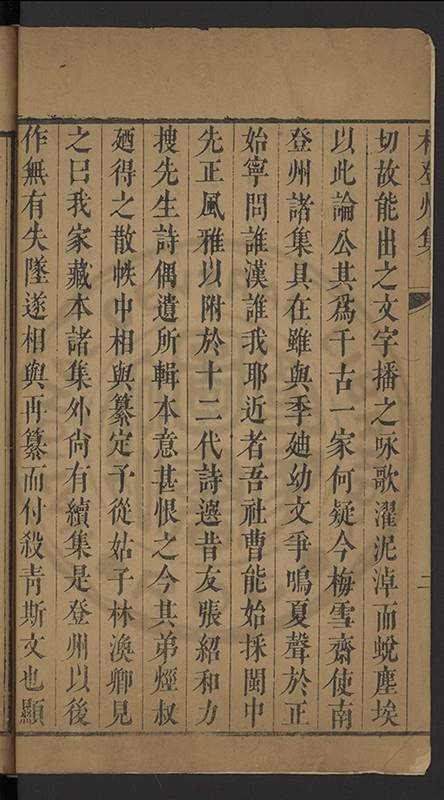 林登州集
二
切故能出之文字播之咏歌濯泥淖而蛻塵埃
以此論公其爲千古一家何疑今梅雪齋使南
登州諸集具在雖與季廸幼文爭鳴夏聲於正
始寧問誰漢誰我耶近者吾社曹能始採閩中
先正風雅以附於十二代詩選昔友張紹和力
搜先生詩偶遺所輯本意甚恨之今其弟烴叔
廼得之散帙中相與纂定予從姑子林渙卿見
之曰我家藏本諸集外尚有續集是登州以後
作無有失墜遂相與再纂而付殺青斯文也顯